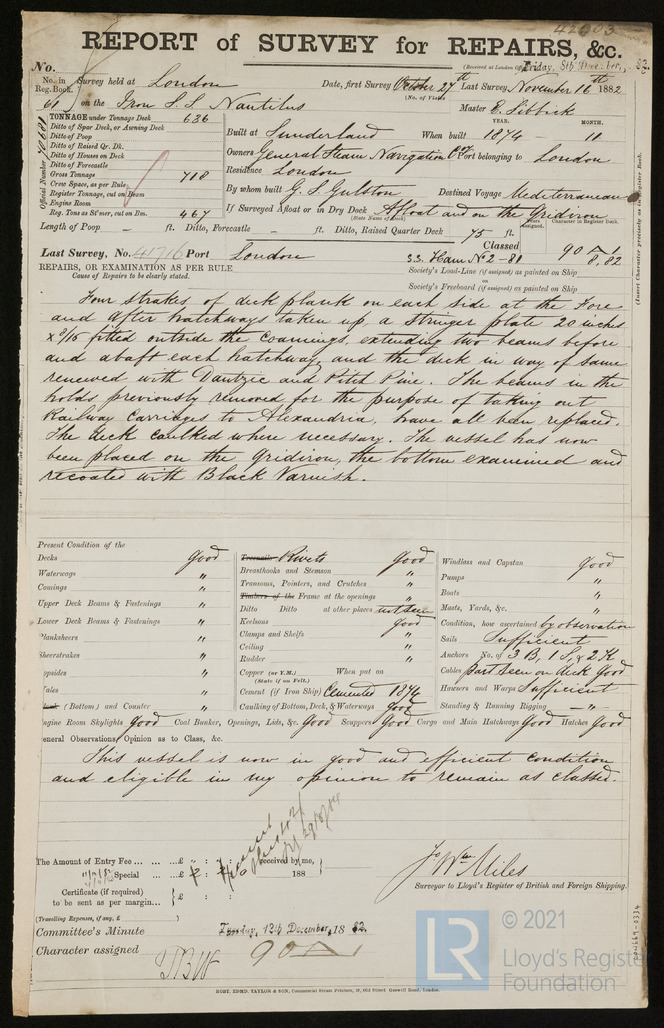 42003
REPORT of SURVEY for REPAIRS, &c.
No. (Received at London Office, Friday, 8th December, 82.
No. in Reg. Book. Survey held at London Date, first Survey October 27th Last Survey November 16th 1882
(No. of Visits
61 on the Iron S.S. Nautilus Master E. Sibbick
TONNAGE under Tonnage Deck 636
Ditto of Spar Deck, or Awning Deck
Ditto of Poop
Ditto of Raised Qr. Dk.
Ditto of Houses on Deck
Ditto of Forecastle
Gross Tonnage 718
Crew Space, as per Rule
Register Tonnage, cut on Beam
Engine Room
Reg. Tons as St'mer, cut on Bm. 467
Official Number
YEAR. MONTH.
Built at Sunderland When built 1874 - 11
Owners General Steam Navigation Co Port belonging to London
Residence London
By whom built G. S. Gulston Destined Voyage Mediterranean
If Surveyed Afloat or in Dry Dock Afloat and on the Gridiron
(State Name of Dock)
Length of Poop - ft. Ditto, Forecastle - ft. Ditto, Raised Quarter Deck 75 ft.
Years Assigned. Character in Register Book.
Last Survey, No. 41716 Port London Classed 90 A 1
S.S. Ham No 2 - 81 8,82
REPAIRS, OR EXAMINATION AS PER RULE
Cause of Repairs to be clearly stated.
Society's Load-Line (if assigned) as painted on Ship
or
Society's Freeboard (if assigned) as painted on Ship
(Insert Character precisely as in Register Book.
Four strakes of deck plank on each side at the Fore
and after hatchways taken up, a stringer plate 20 inches
x 8/16 fitted outside the coamings, extending two beams before
and abaft each hatchway, and the deck in way of same
renewed with Dantzic and Pitch Pine. The beams in the
holds previously removed for the purpose of taking out
Railway Carriages to Alexandria, have all been replaced.
The deck caulked where necessary. The vessel has now
been placed on the Gridiron, the bottom examined and
recoated with Black Varnish.
Present Condition of the
Decks Good
Waterways "
Comings "
Upper Deck Beams & Fastenings "
Lower Deck Beams & Fastenings "
Planksheers "
Sheerstrakes "
opsides "
ales "
(Bottom) and Counter "
Treenails Rivets Good
Breasthooks and Stemson "
Transoms, Pointers, and Crutches "
Timbers of the Frame at the openings "
Ditto Ditto at other places not seen
Keelsons Good
Clamps and Shelfs "
Ceiling "
Rudder "
Copper (or Y.M.) When put on
(State if on Felt.)
Cement (if Iron Ship) Cemented 1874
Caulking of Bottom, Deck, & Waterways Good
Windlass and Capstan Good
Pumps "
Boats "
Masts, Yards, &c. "
Condition, how ascertained by observation
Sails Sufficient
Anchors No. of 3 B, 1 S, & 2 K
Cables part seen on deck Good
Hawsers and Warps Sufficient
Standing & Running Rigging - " -
Engine Room Skylights Good Coal Bunker, Openings, Lids, &c. Good Scuppers Good Cargo and Main Hatchways Good Hatches Good
eneral Observations, Opinion as to Class, &c.
This vessel is now in good and efficient condition
and eligible in my opinion to remain as classed.
The Amount of Entry Fee ... ... ... £ : : received by me,
Special ... ... £ : : 188
Certificate (if required)
to be sent as per margin... } £ :
(Travelling Expenses, if any, £ )
Jo Wm Miles
Surveyor to Lloyd's Register of British and Foreign Shipping.
Committee's Minute Tuesday, 12th December, 18 82.
Character assigned 90 A
ROBT. EDMD. TAYLOR & SON, Commercial Steam Printers, 19, Old Street, Goswell Road, London.
LR © 2021
Lloyd's Register
Foundation